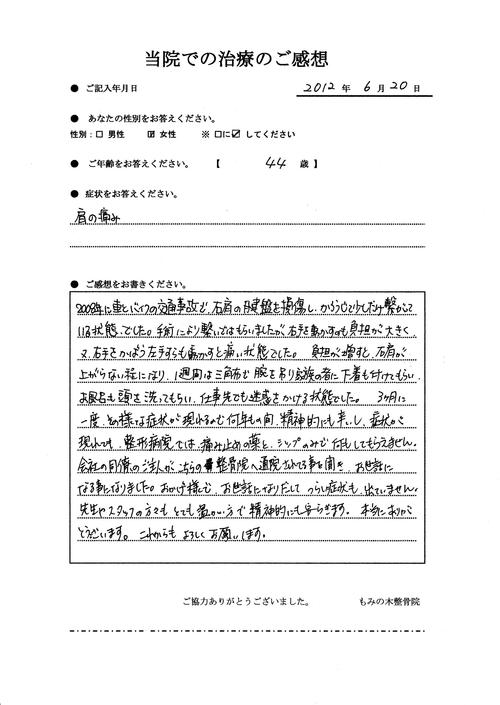 当院での治療のご感想
● ご記入年月日 2012 年 6 月 20 日
● あなたの性別をお答えください。
性別：□ 男性 ☑ 女性 ※ □に☑ してください
● ご年齢をお答えください。 【 44 歳】
● 症状をお答えください。
肩の痛み
● ご感想をお書きください。
2008年に車とバイクの交通事故で、右肩の腱盤を損傷し、かろうじて少しだけ繋がって
いる状態でした。手術により繋いではもらいましたが右手を動かすのも負担が大きく
又、右手をかばう左手すらも動かすと痛い状態でした。 負担が増すと、右肩が
上がらない程になり、1週間は三角布で腕を吊り家族の者に下着も付けてもらい
お風呂も頭を洗ってもらい、仕事先でも迷惑をかける状態でした。 3ヶ月に
一度、その様な症状が現れるので何年もの間、精神的にも辛いし、症状が
現れても、整形病院では、痛み止めの薬と、シップのみで何もしてもらえません。
会社の同僚のご主人がこちらの整骨院へ通院されてる事を聞き、お世話に
なる事になりました。おかげ様で、お世話になりだして つらい症状も、出ていません。
先生やスタッフの方々も とても温かい方で精神的にも安らぎます。 本当にありが
とうございます。 これからも よろしくお願いします。
ご協力ありがとうございました。 もみの木整骨院